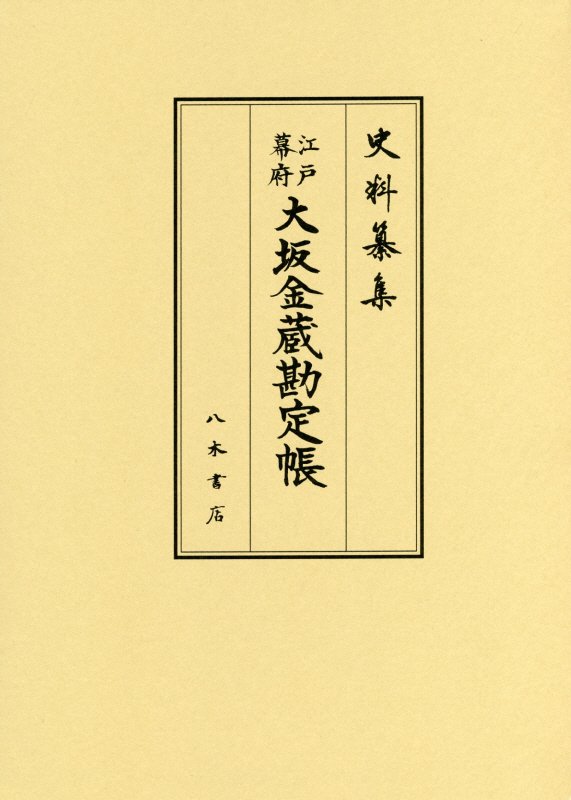 史料纂集
江戸
幕府
大坂金蔵勘定帳
八木書店